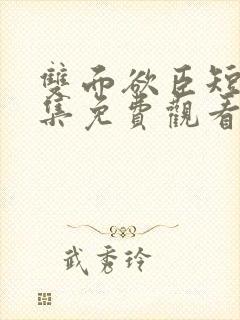 雙而欲臣短
集免費觀看
武秀玲